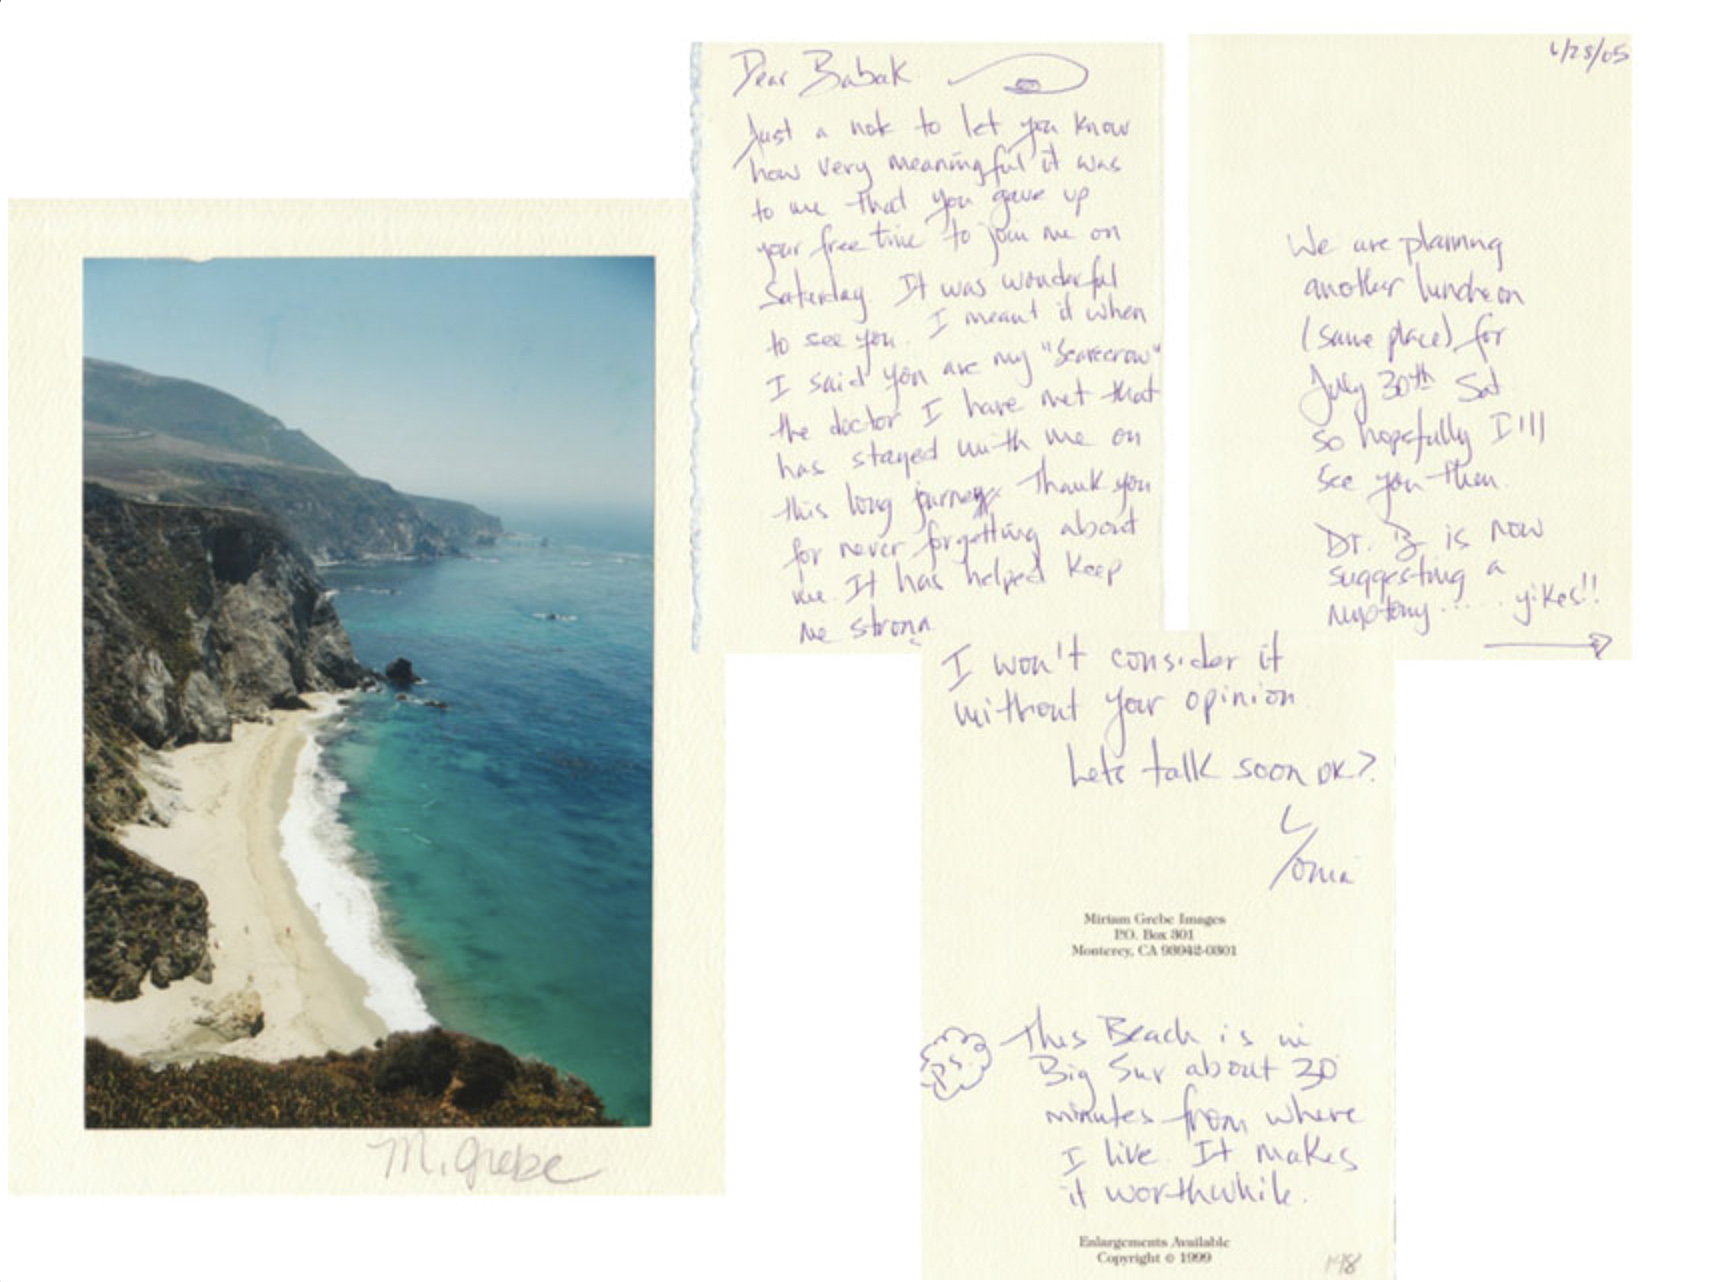 M. Grebe
Dear Babak
Just a note to let you know
how very meaningful it was
to me that you gave up
your free time to join me on
Saturday. It was wonderful
to see you. I meant it when
I said you are my "Scarecrow"
the doctor I have met that
has stayed with me on
this long journey. Thank you
for never forgetting about
me. It has helped keep
me strong
6/28/05
We are planning
another luncheon
(same place) for
July 30th Sat
so hopefully I'll
see you then.
Dr. B is now
suggesting a
..... yikes!!
I won't consider it
without your opinion.
Lets talk soon ok?
Miriam Grebe Images
P.O. Box 301
Monterey, CA 93942-0301
P.S.
This Beach is in
Big Sur about 30
minutes from where
I live. It makes
it worthwhile.
Enlargements Available
Copyright © 1999